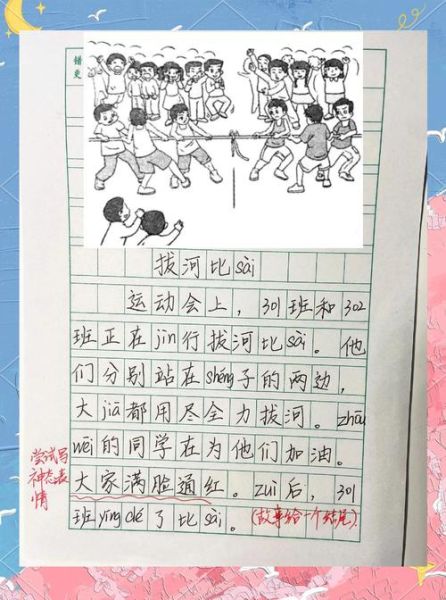 错更
拔河比sài
运动会上，301班和302
班正在jìn行拔河比sài。他
们分别站在shéng子的两边，
大jiā都用尽全力拔河。zhōu
wéi的同学在为他们加油。
尝试写
神态表
情
大家满脸通红。zuì后，301
班yíng dé了比sài。(故事给一个结尾)